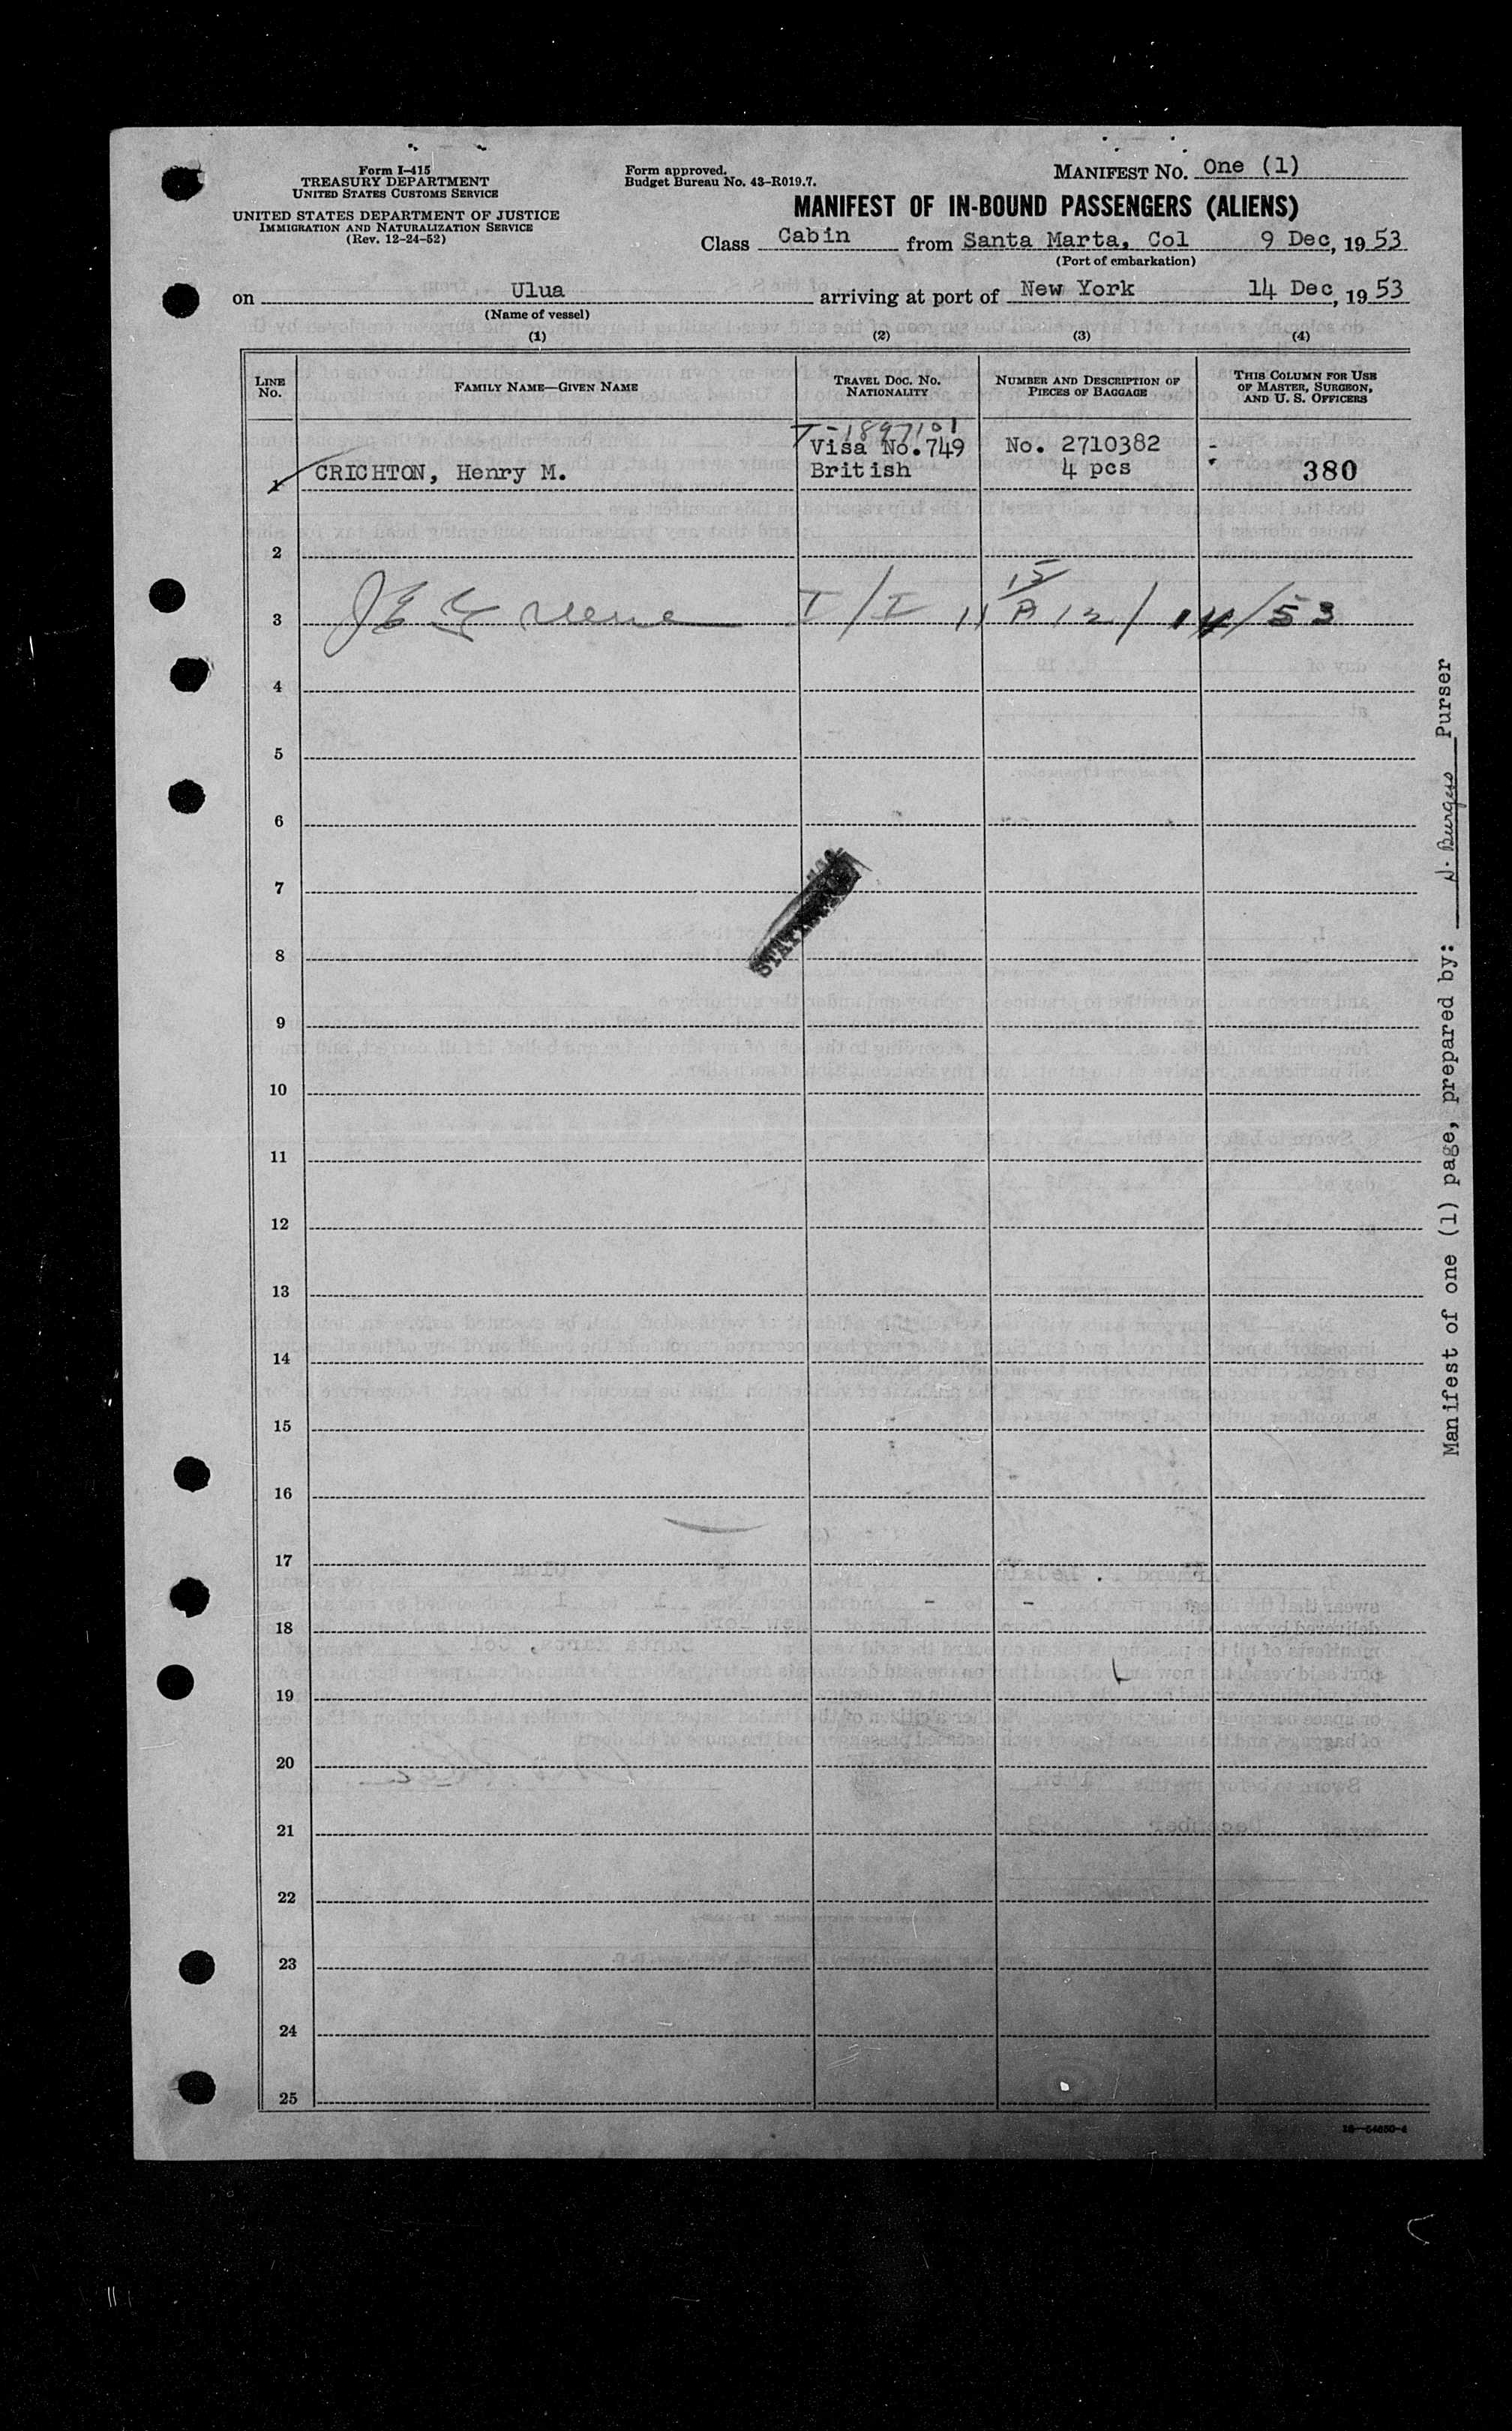 Form I-415
TREASURY DEPARTMENT
UNITED STATES CUSTOMS SERVICE
UNITED STATES DEPARTMENT OF JUSTICE
IMMIGRATION AND NATURALIZATION SERVICE
(Rev. 12-24-52)
Form approved.
Budget Bureau No. 43-R019.7.
MANIFEST NO. One (1)
MANIFEST OF IN-BOUND PASSENGERS (ALIENS)
Class Cabin from Santa Marta, Col 9 Dec, 1953
(Port of embarkation)
on Ulua arriving at port of New York 14 Dec, 1953
(Name of vessel)
(1) (2) (3) (4)
LINE NO. FAMILY NAME—GIVEN NAME TRAVEL DOC. NO. NATIONALITY NUMBER AND DESCRIPTION OF PIECES OF BAGGAGE THIS COLUMN FOR USE OF MASTER, SURGEON, AND U. S. OFFICERS
T-1897101
Visa No. 749 No. 2710382 -
1 CRICHTON, Henry M. British 4 pcs 380
2
15
3 I/I 11 A 12/14/53
4
5
6
7
8
9
10
11
12
13
14
15
16
17
18
19
20
21
22
23
24
25
Manifest of one (1) page, prepared by: N. Burgess Purser